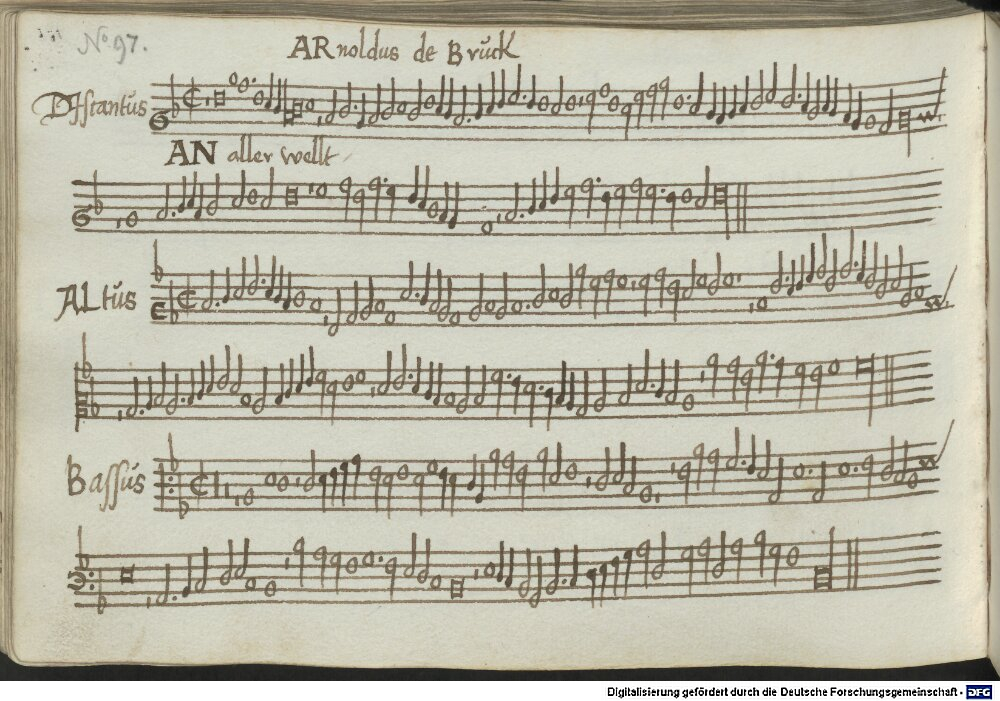 No 97.
ARnoldus de Bruck
DIscantus
AN aller wellt
ALtus
Bassus
Digitalisierung gefördert durch die Deutsche Forschungsgemeinschaft - DFG